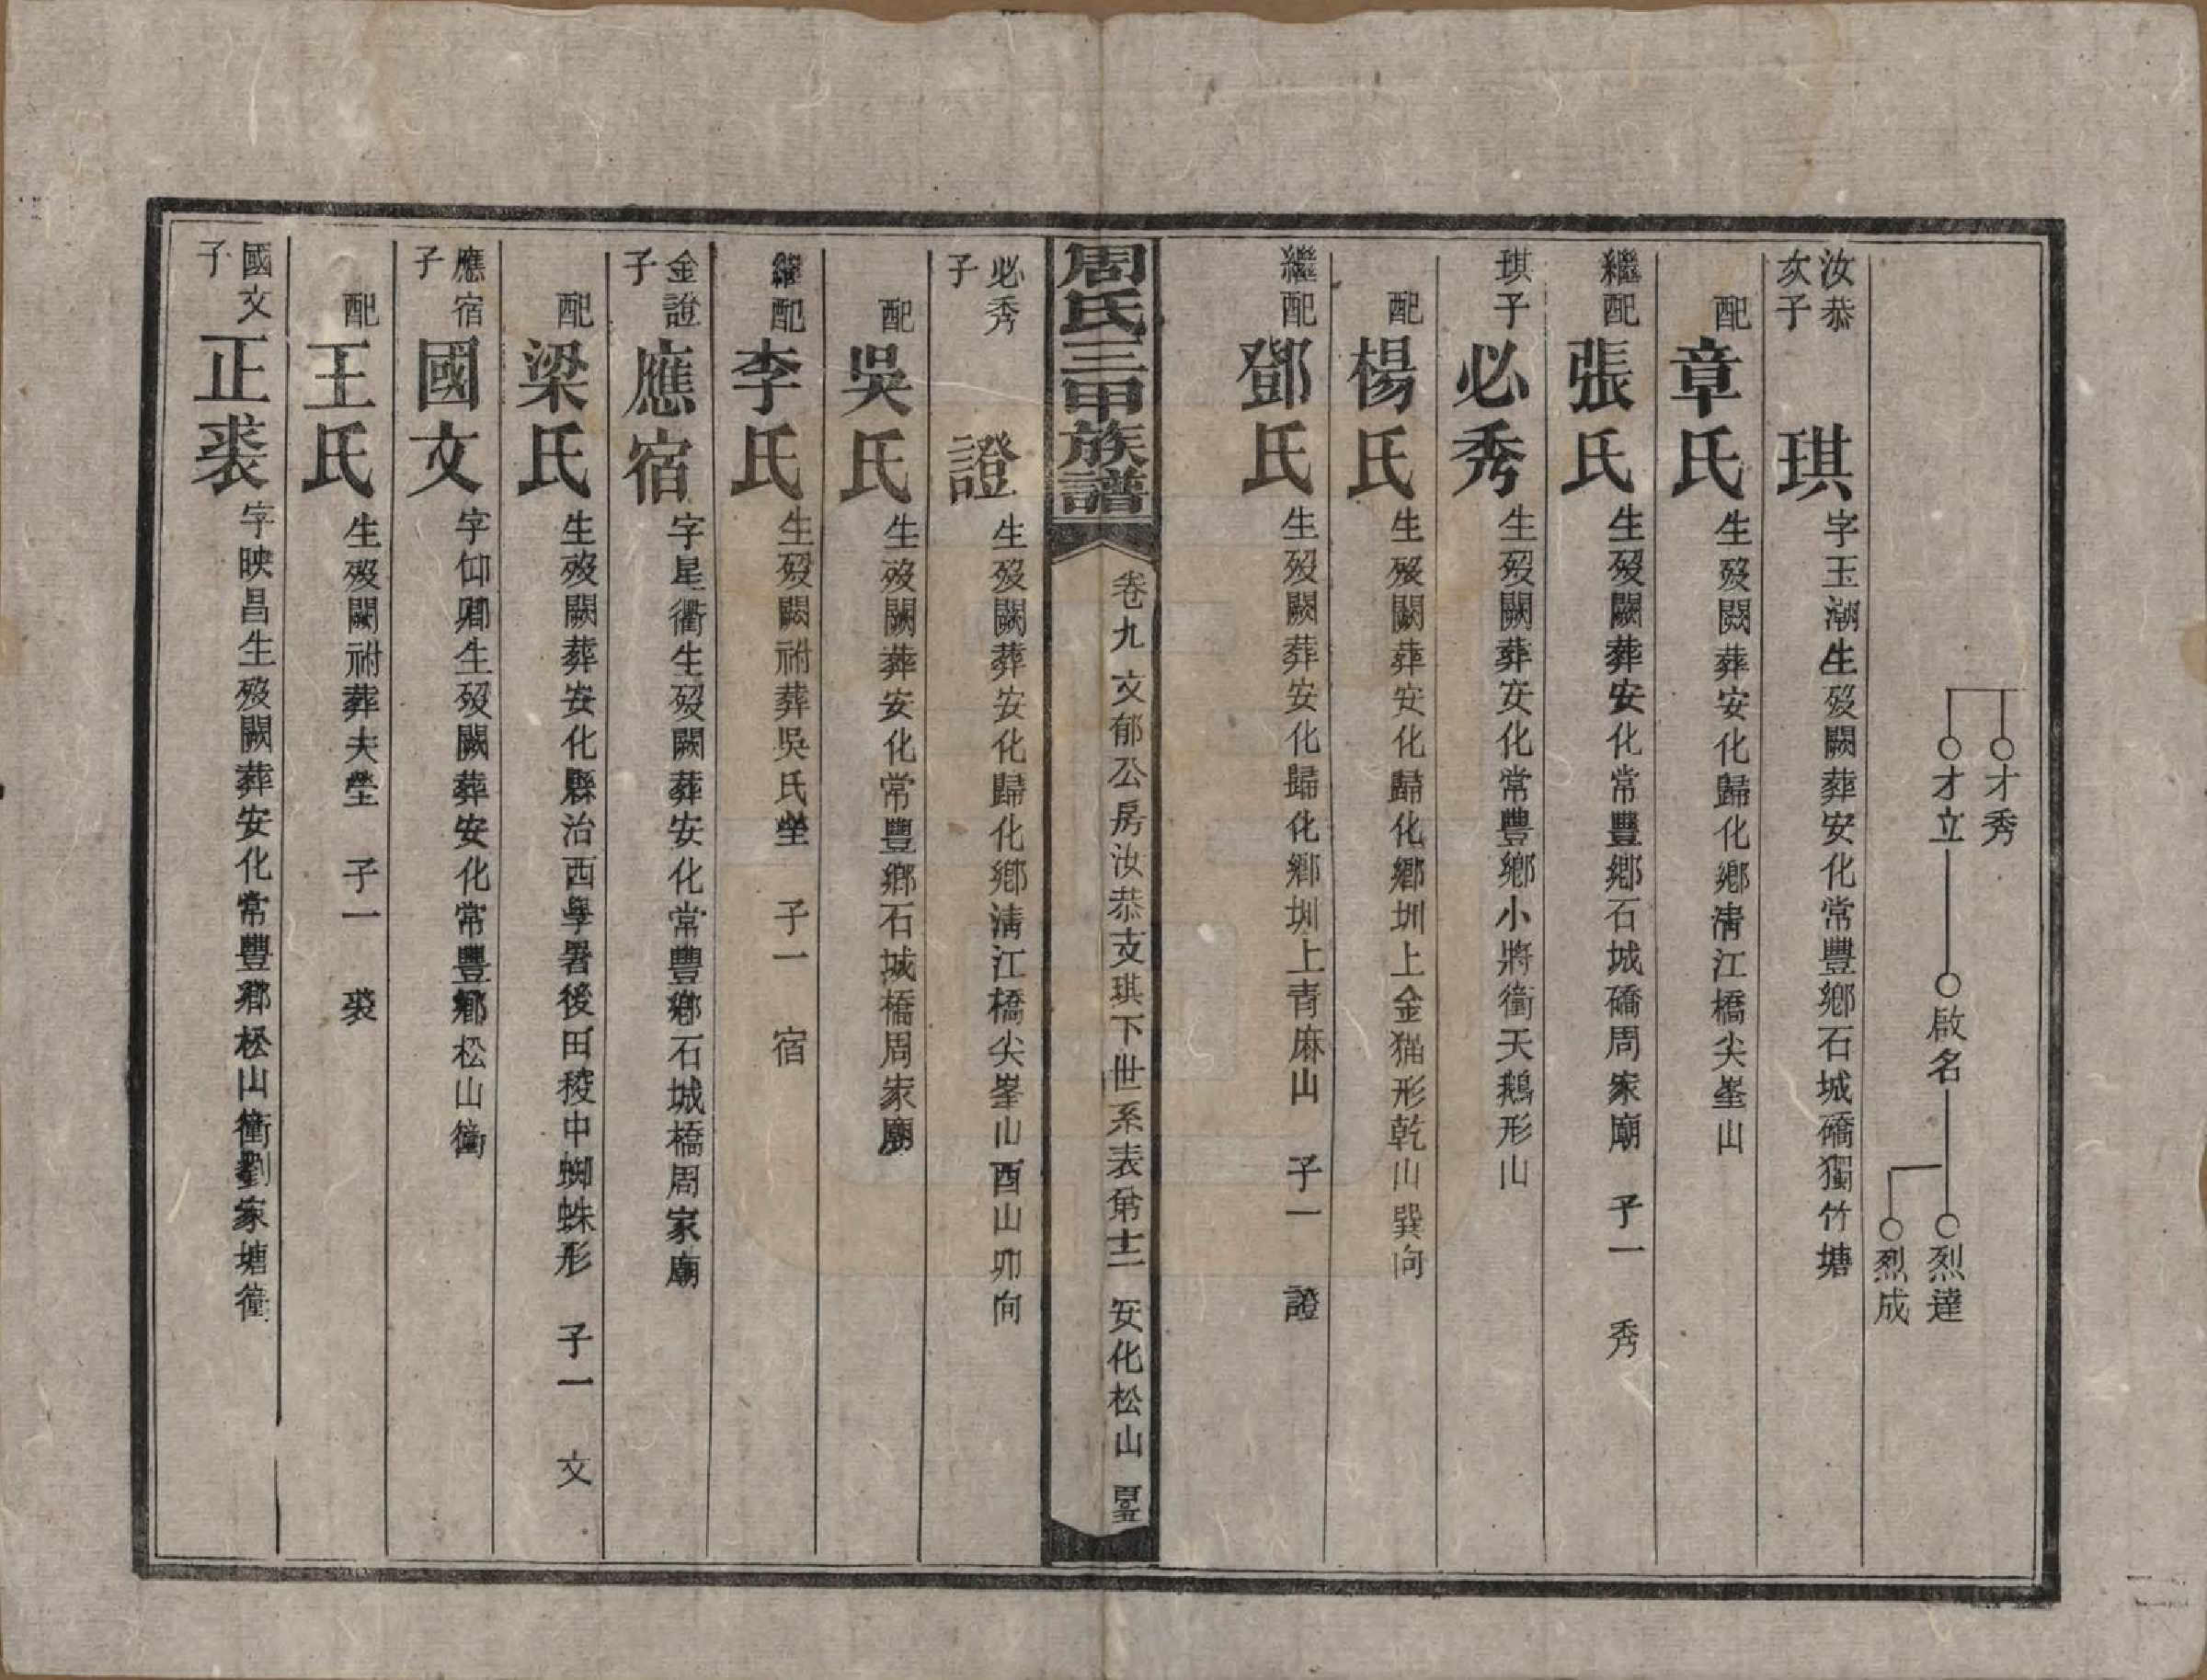 才秀
才立 啟名 烈達
烈成
汝恭次子 琪 字玉潮生歿闕葬安化常豐鄉石城礄獨竹塘
配 章氏 生歿闕葬安化歸化鄉清江橋尖峯山
繼配 張氏 生歿闕葬安化常豐鄉石城礄周家廟 子一 秀
琪子 必秀 生歿闕葬安化常豐鄉小將衝天鵝形山
配 楊氏 生歿闕葬安化歸化鄉圳上金猫形乾山巽向
繼配 鄧氏 生歿闕葬安化歸化鄉圳上青麻山 子一 證
周氏三甲族譜 卷九 文郁公房汝恭支琪下世系表第十二 安化松山
必秀子 證 生歿闕葬安化歸化鄉清江橋尖峯山酉山卯向
配 吳氏 生歿闕葬安化常豐鄉石城橋周家廟
繼配 李氏 生歿闕祔葬吳氏塋 子一 宿
金證子 應宿 字星衢生歿闕葬安化常豐鄉石城橋周家廟
配 梁氏 生歿闕葬安化縣治西學署後田稜中蜘蛛形 子一 文
應宿子 國文 字仰卿生歿闕葬安化常豐鄉松山衝
配 王氏 生歿闕祔葬夫塋 子一 裘
國文子 正裘 字映昌生歿闕葬安化常豐鄉松山衝劉家塘衝